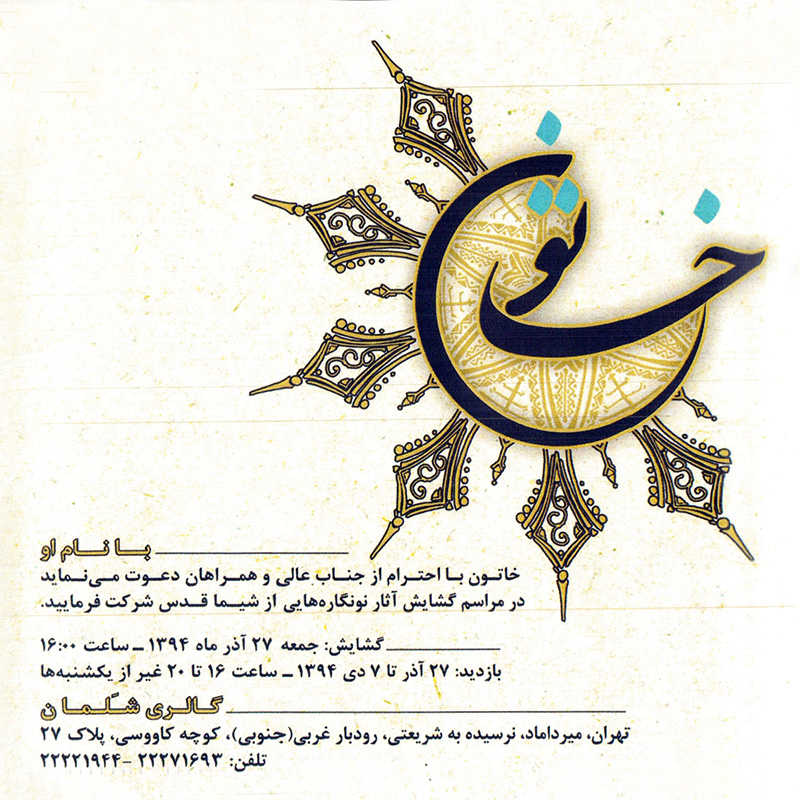 خاتون
با نام او
خاتون با احترام از جناب عالی و همراهان دعوت می‌نماید
در مراسم گشایش آثار نونگاره‌هایی از شیما قدس شرکت فرمایید.
گشایش: جمعه ۲۷ آذر ماه ۱۳۹۴ – ساعت ۱۶:۰۰
بازدید: ۲۷ آذر تا ۷ دی ۱۳۹۴ – ساعت ۱۶ تا ۲۰ غیر از یکشنبه‌ها
گالری شَلمان
تهران، میرداماد، نرسیده به شریعتی، رودبار غربی(جنوبی)، کوچه کاووسی، پلاک ۲۷
تلفن: ۲۲۲۷۱۶۹۳ -۲۲۲۲۱۹۴۴